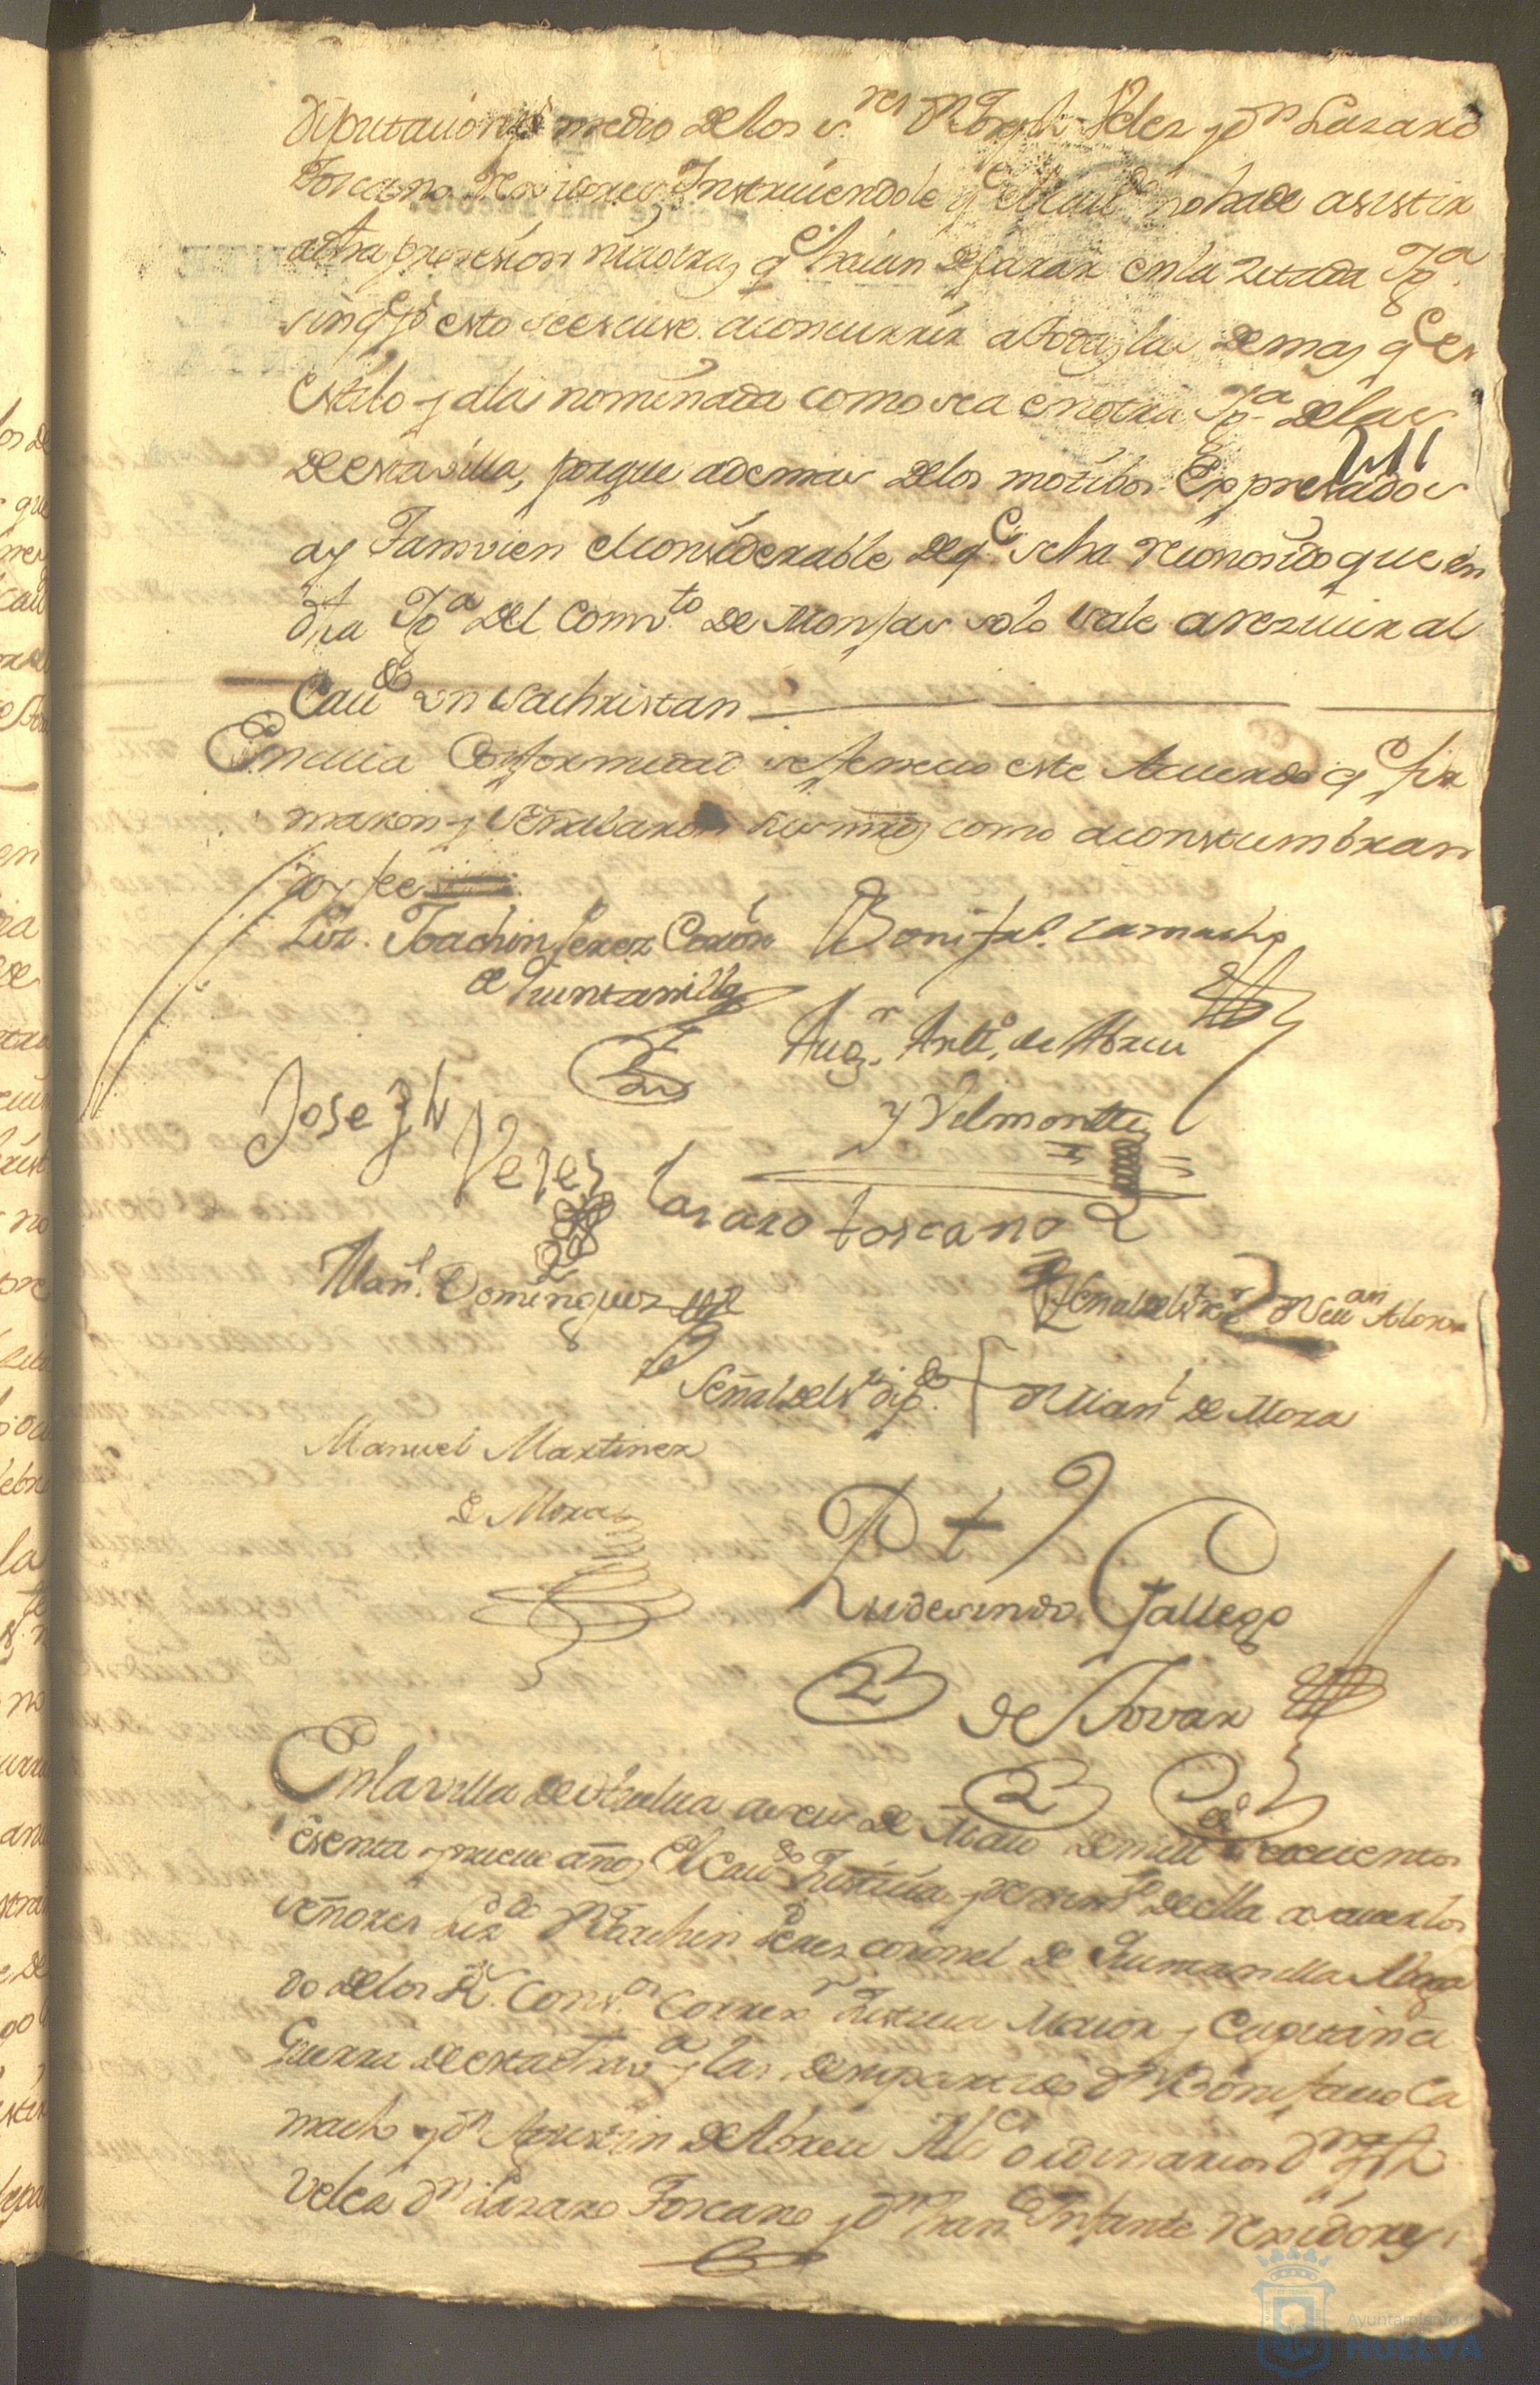 diputacion pr medio de los sres Dn Joseph Velez y Dn Lazaro
Toscano Rexidores, Instruiendole qe el Cavdo no ha de asistir
a dha prosesion mientras qe haian de parar en la zitada Yga
sin qe pr esto se escuse a concurrir a todas las demas qe es
estilo y a la nominada como sea en otra Yga de las
de esta villa, porque ademas de los motibos Expresados
ay Tamvien el considerable de qe se ha reconosido que en
dha Yga del Convto de Monjas solo sale a rezivir al
Cavdo un sachristan
En cuia Conformidad se feneció este Acuerdo qe fir
maron y señalaron sus mrds como acostumbran
doy fee
Liz. Joachin Perez Coron
de Runtanilla
Bonifao. Camacho
Augn. Antto. de Abreu
y Velmontte
Joseph
Velez
Lasaro toscano
Manl. Domingues
Señal del Sr Rexr Dn Sevan Alonso
Señal del Sr Dipdo Dn Manl de Mora
Manuel Martinez
de Mora
Rudesindo Gallego
de Tovar
En la villa de Huelva a seis de Maio de mill setecientos
sesenta y nueve años El Cavdo Justicia y Reximto de ella a saver los
señores Lizdo Dn Joachin Perez coronel de Runtanilla Aboga
do de los Rs. Consos Correxr Justicia Maior y Capitan a
Guerra de esta dha va y las de su partido Dn Bonifacio Ca
macho y Dn Agustin de Abreu Alces ordinarios Dn Jph
Velez Dn Lazaro Toscano y Dn Franco Infante Rexidores
Ayuntamiento de
HUELVA